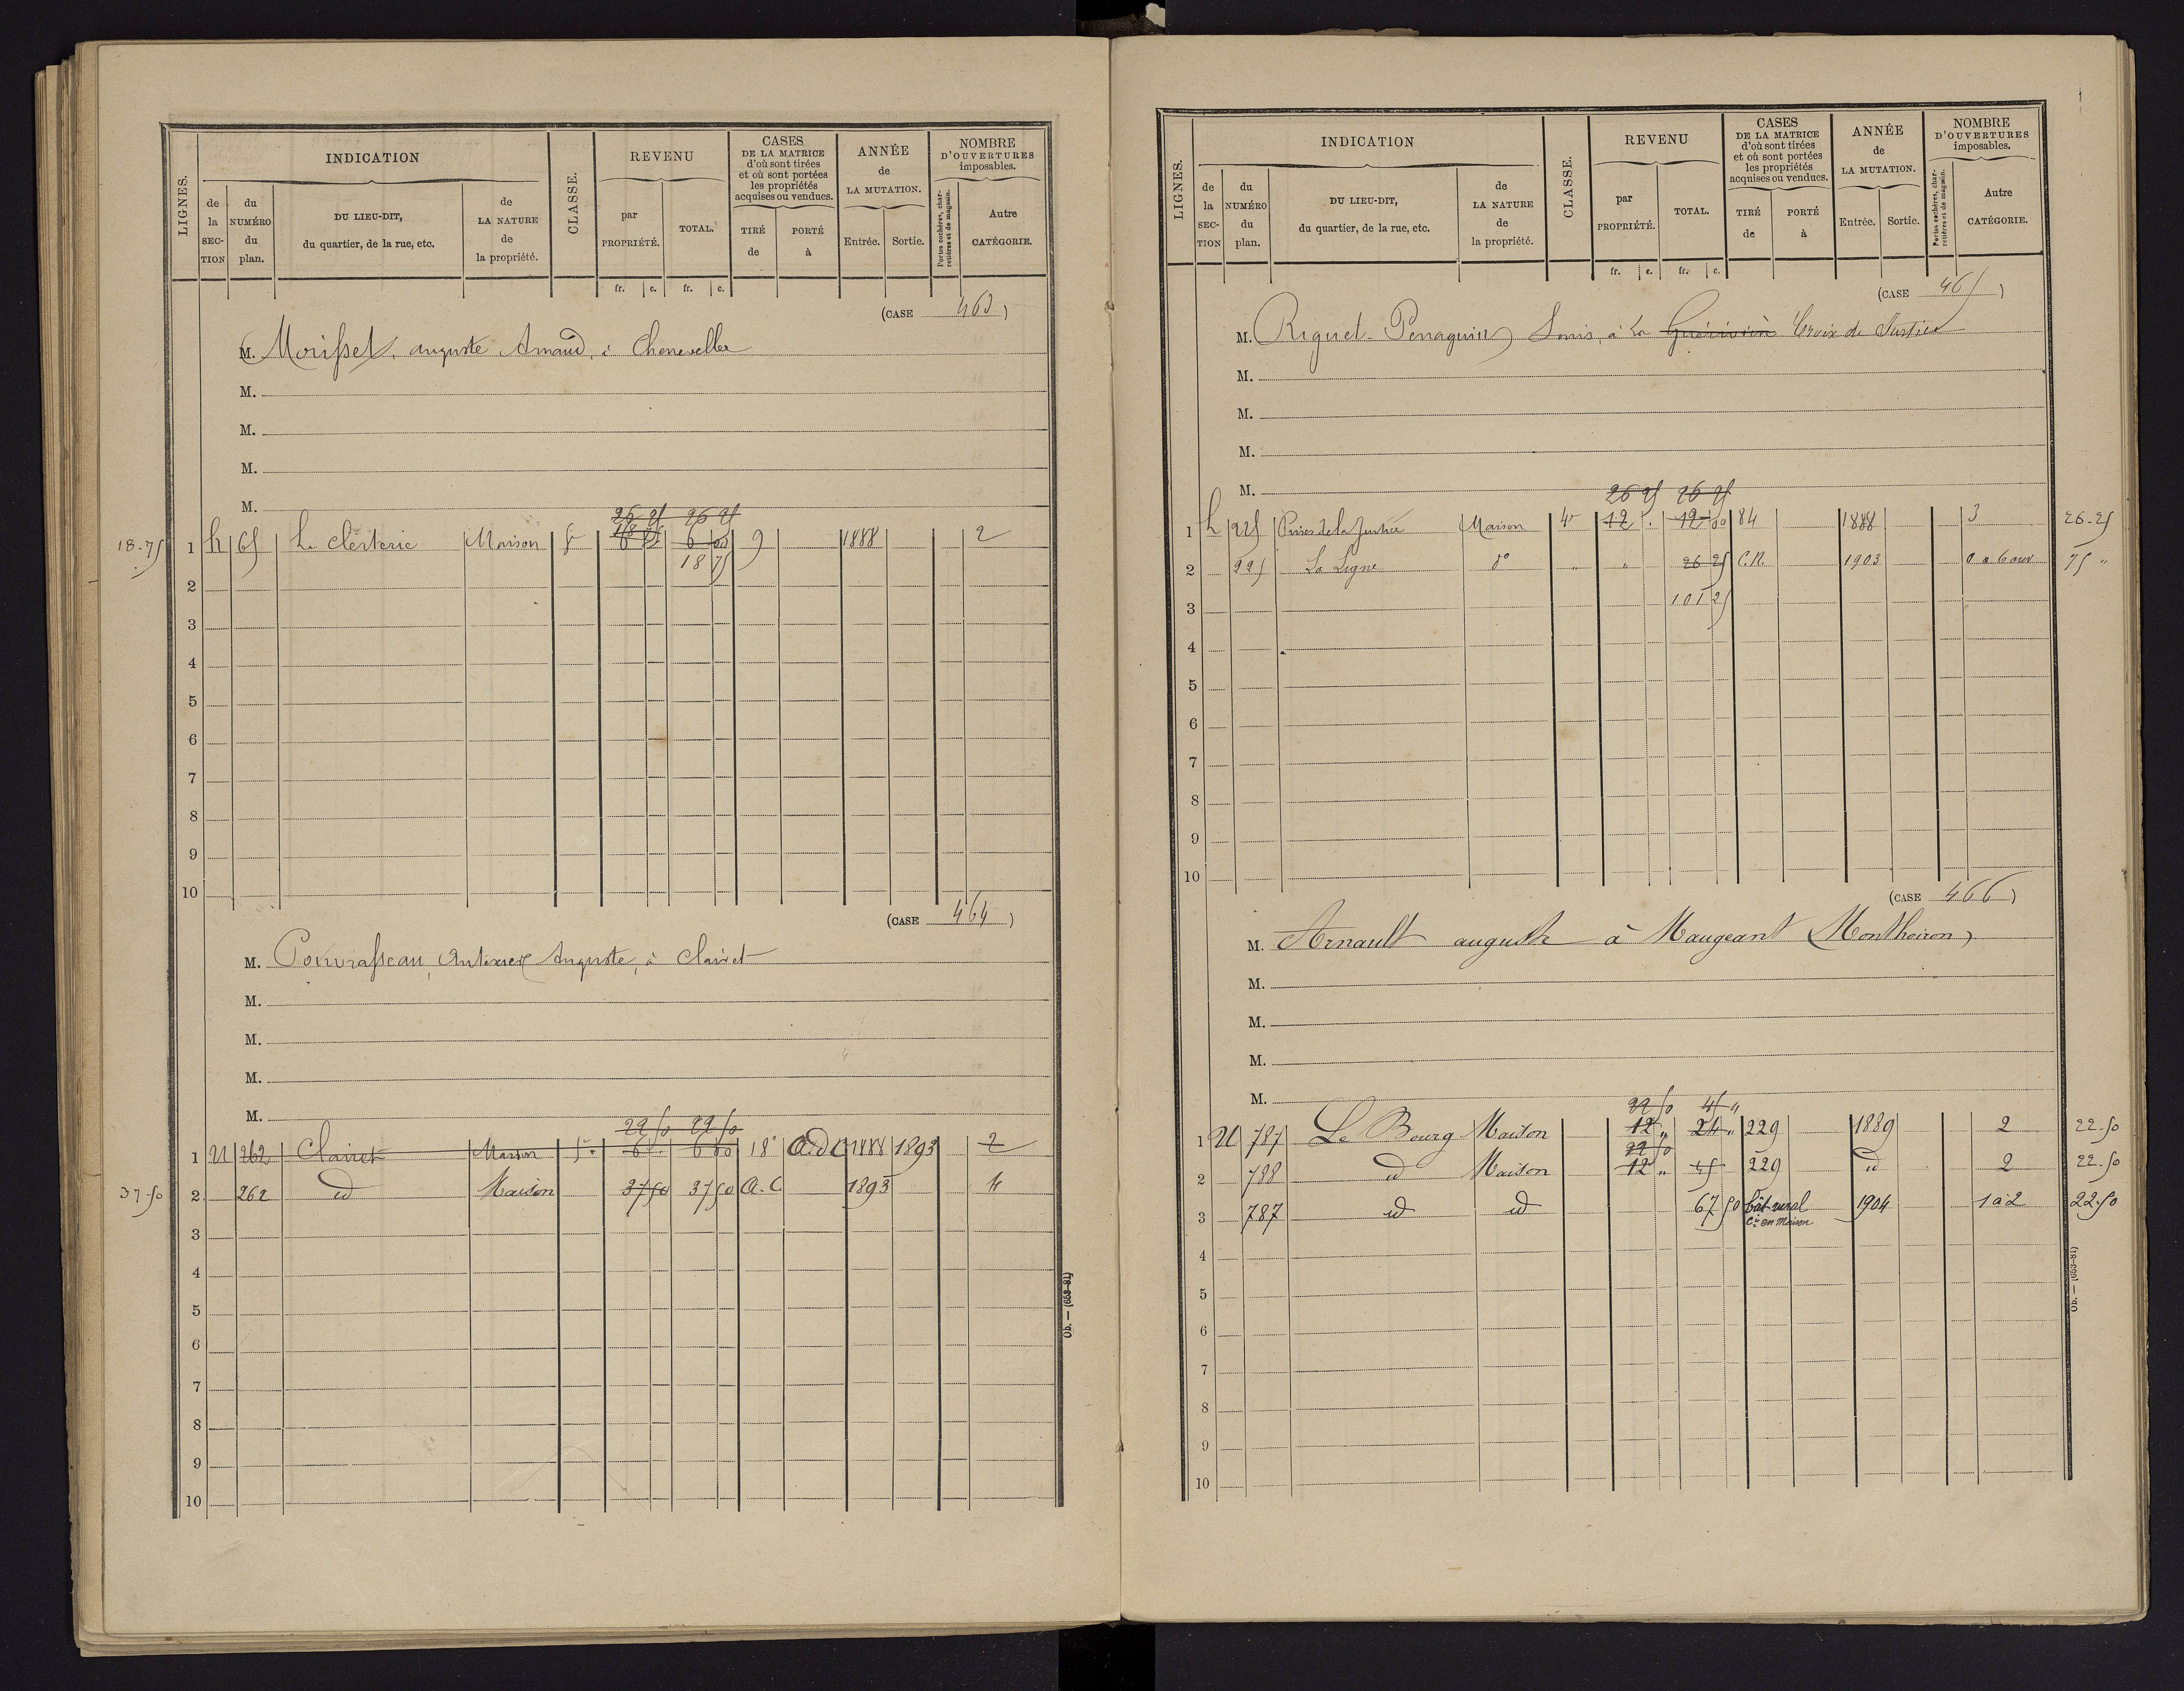 LIGNES.
INDICATION
de la SECTION
du NUMÉRO du plan.
DU LIEU-DIT, du quartier, de la rue, etc.
de LA NATURE de la propriété.
CLASSE.
REVENU
par PROPRIÉTÉ.
TOTAL.
CASES DE LA MATRICE d'où sont tirées et où sont portées les propriétés acquises ou vendues.
TIRÉ de
PORTÉ à
ANNÉE de LA MUTATION.
Entrée. Sortie.
NOMBRE D'OUVERTURES imposables.
Portes cochères, charretières et de magasin.
Autre CATÉGORIE.
fr. c. fr. c.
(CASE 463)
M. Morisset, auguste Arnaud, à Chenevelles
M.
M.
M.
M.
26 25 26 25
18 75
18-75 1 h 65 La Clerterie Maison 5e 6 6 00 9 1888 2
2 18 75
3
4
5
6
7
8
9
10
(CASE 464)
M. Pouvrasseau, Auguste, à Clairet
M.
M.
M.
M.
22 50 22 50
1 U 262 Clairet Maison 5e 6 6 00 18 a.d.C 1888 1893 2
37-50 2 262 id Maison 37 50 37 50 a.C 1893 4
3
4
5
6
7
8
9
10
OD. — (653-81)
LIGNES.
INDICATION
de la SECTION
du NUMÉRO du plan.
DU LIEU-DIT, du quartier, de la rue, etc.
de LA NATURE de la propriété.
CLASSE.
REVENU
par PROPRIÉTÉ.
TOTAL.
CASES DE LA MATRICE d'où sont tirées et où sont portées les propriétés acquises ou vendues.
TIRÉ de
PORTÉ à
ANNÉE de LA MUTATION.
Entrée. Sortie.
NOMBRE D'OUVERTURES imposables.
Portes cochères, charretières et de magasin.
Autre CATÉGORIE.
fr. c. fr. c.
(CASE 465)
M. Riguet- Louis, à La Croix de Justice
M.
M.
M.
M.
26 25 26 25
1 h 225 de la Justice Maison 4e 12 . 12 00 84 1888 3 26-25
2 225 La Ligne do " " 26 25 C.N. 1903 0 a 6 ouv 75 "
3 101 25
4
5
6
7
8
9
10
(CASE 466)
M. Arnault auguste à Maugeant (Monthoiron)
M.
M.
M.
M.
22 50 45 "
1 U 787 Le Bourg Maison 12 " 24 " 229 1889 2 22-50
22 50
2 788 id Maison 12 " 45 229 id 2 22-50
3 787 id id 67 50 bât rural 1904 1 à 2 22-50
en maison
4
5
6
7
8
9
10
OD. — (653-81)